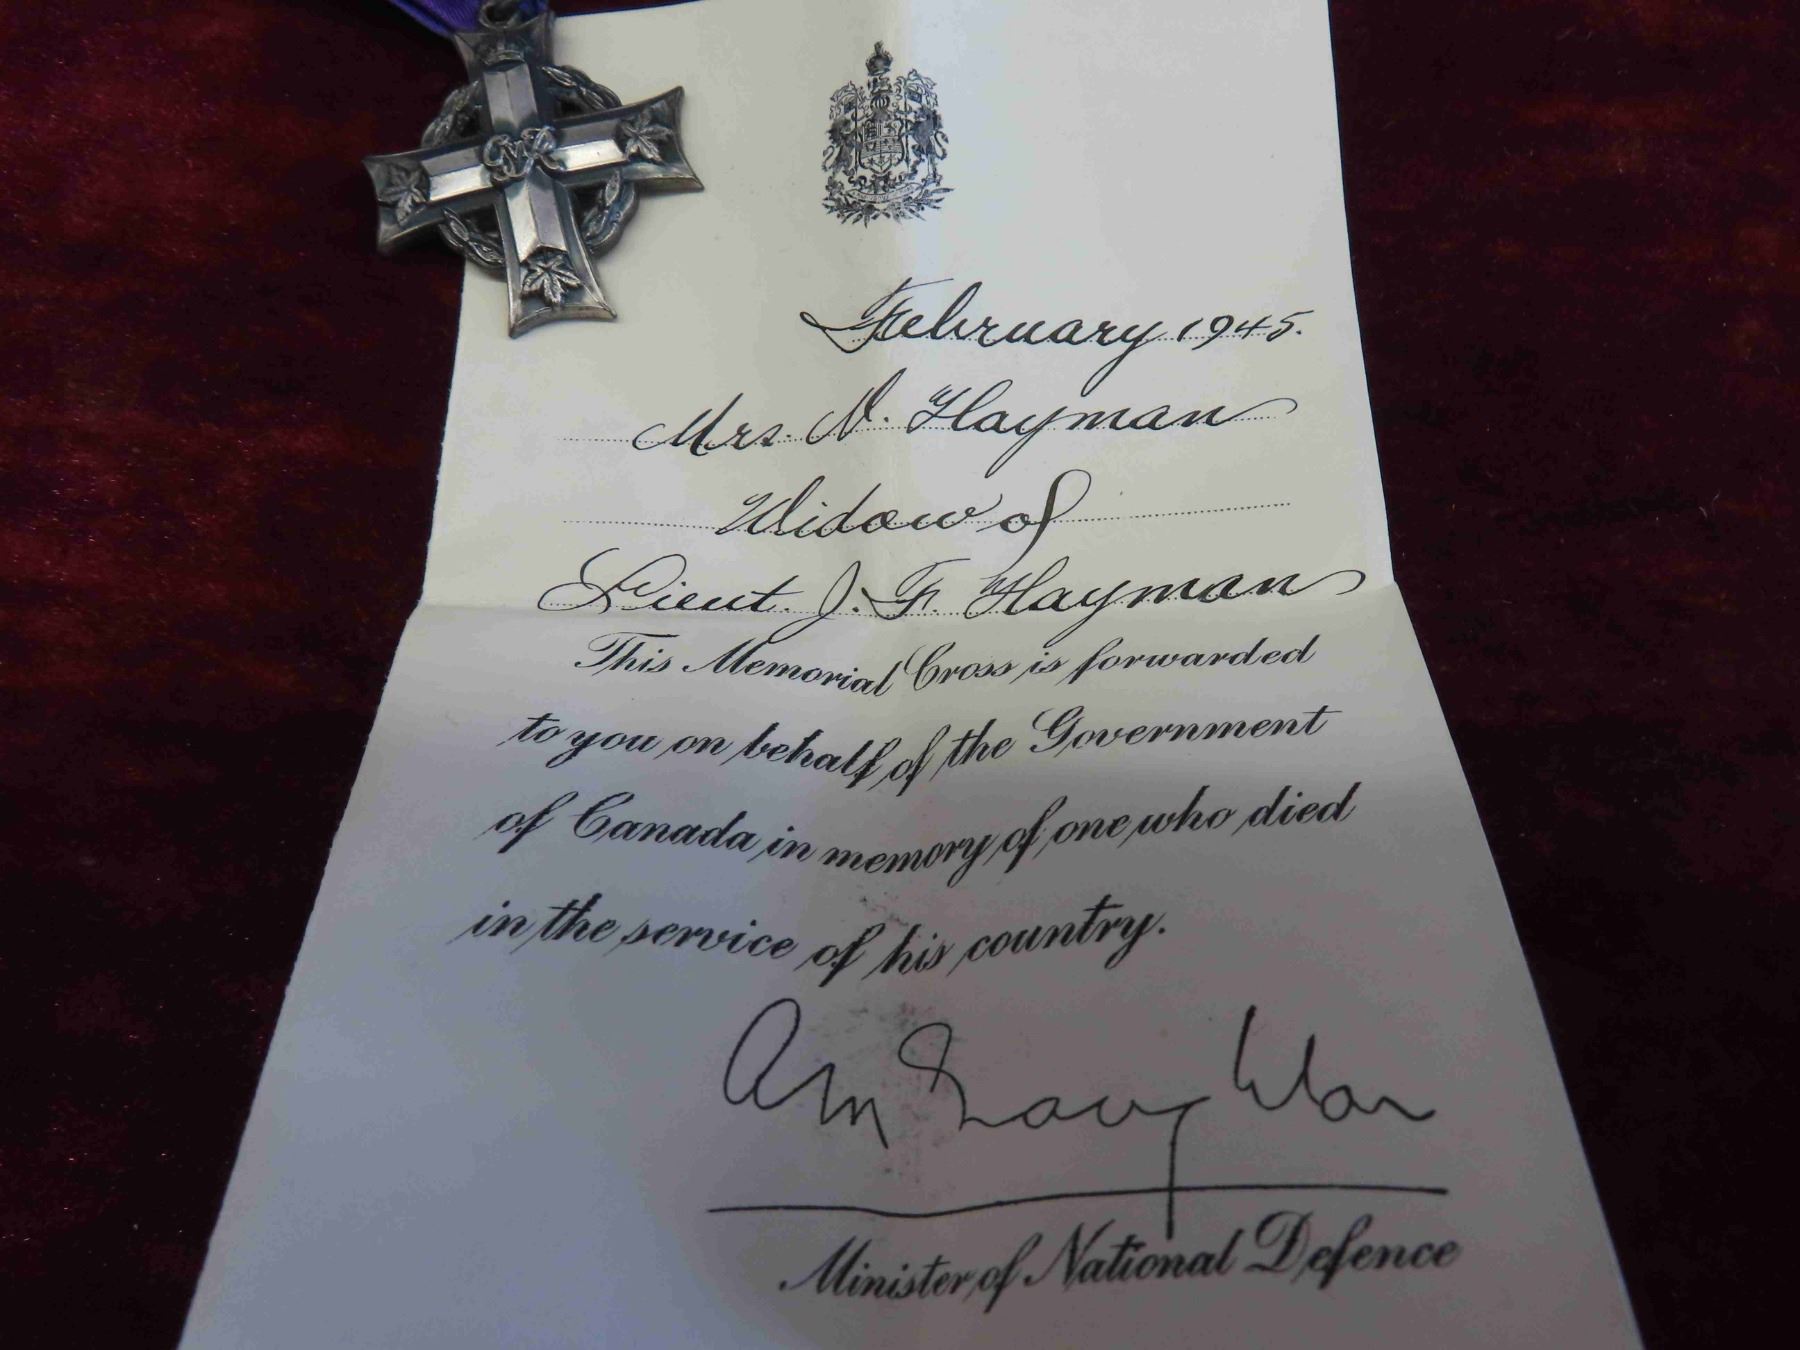 GRI
February 1945.
Mrs. N. Hayman
Widow of
Lieut. J. F. Hayman
This Memorial Cross is forwarded
to you on behalf of the Government
of Canada in memory of one who died
in the service of his country.
Minister of National Defence